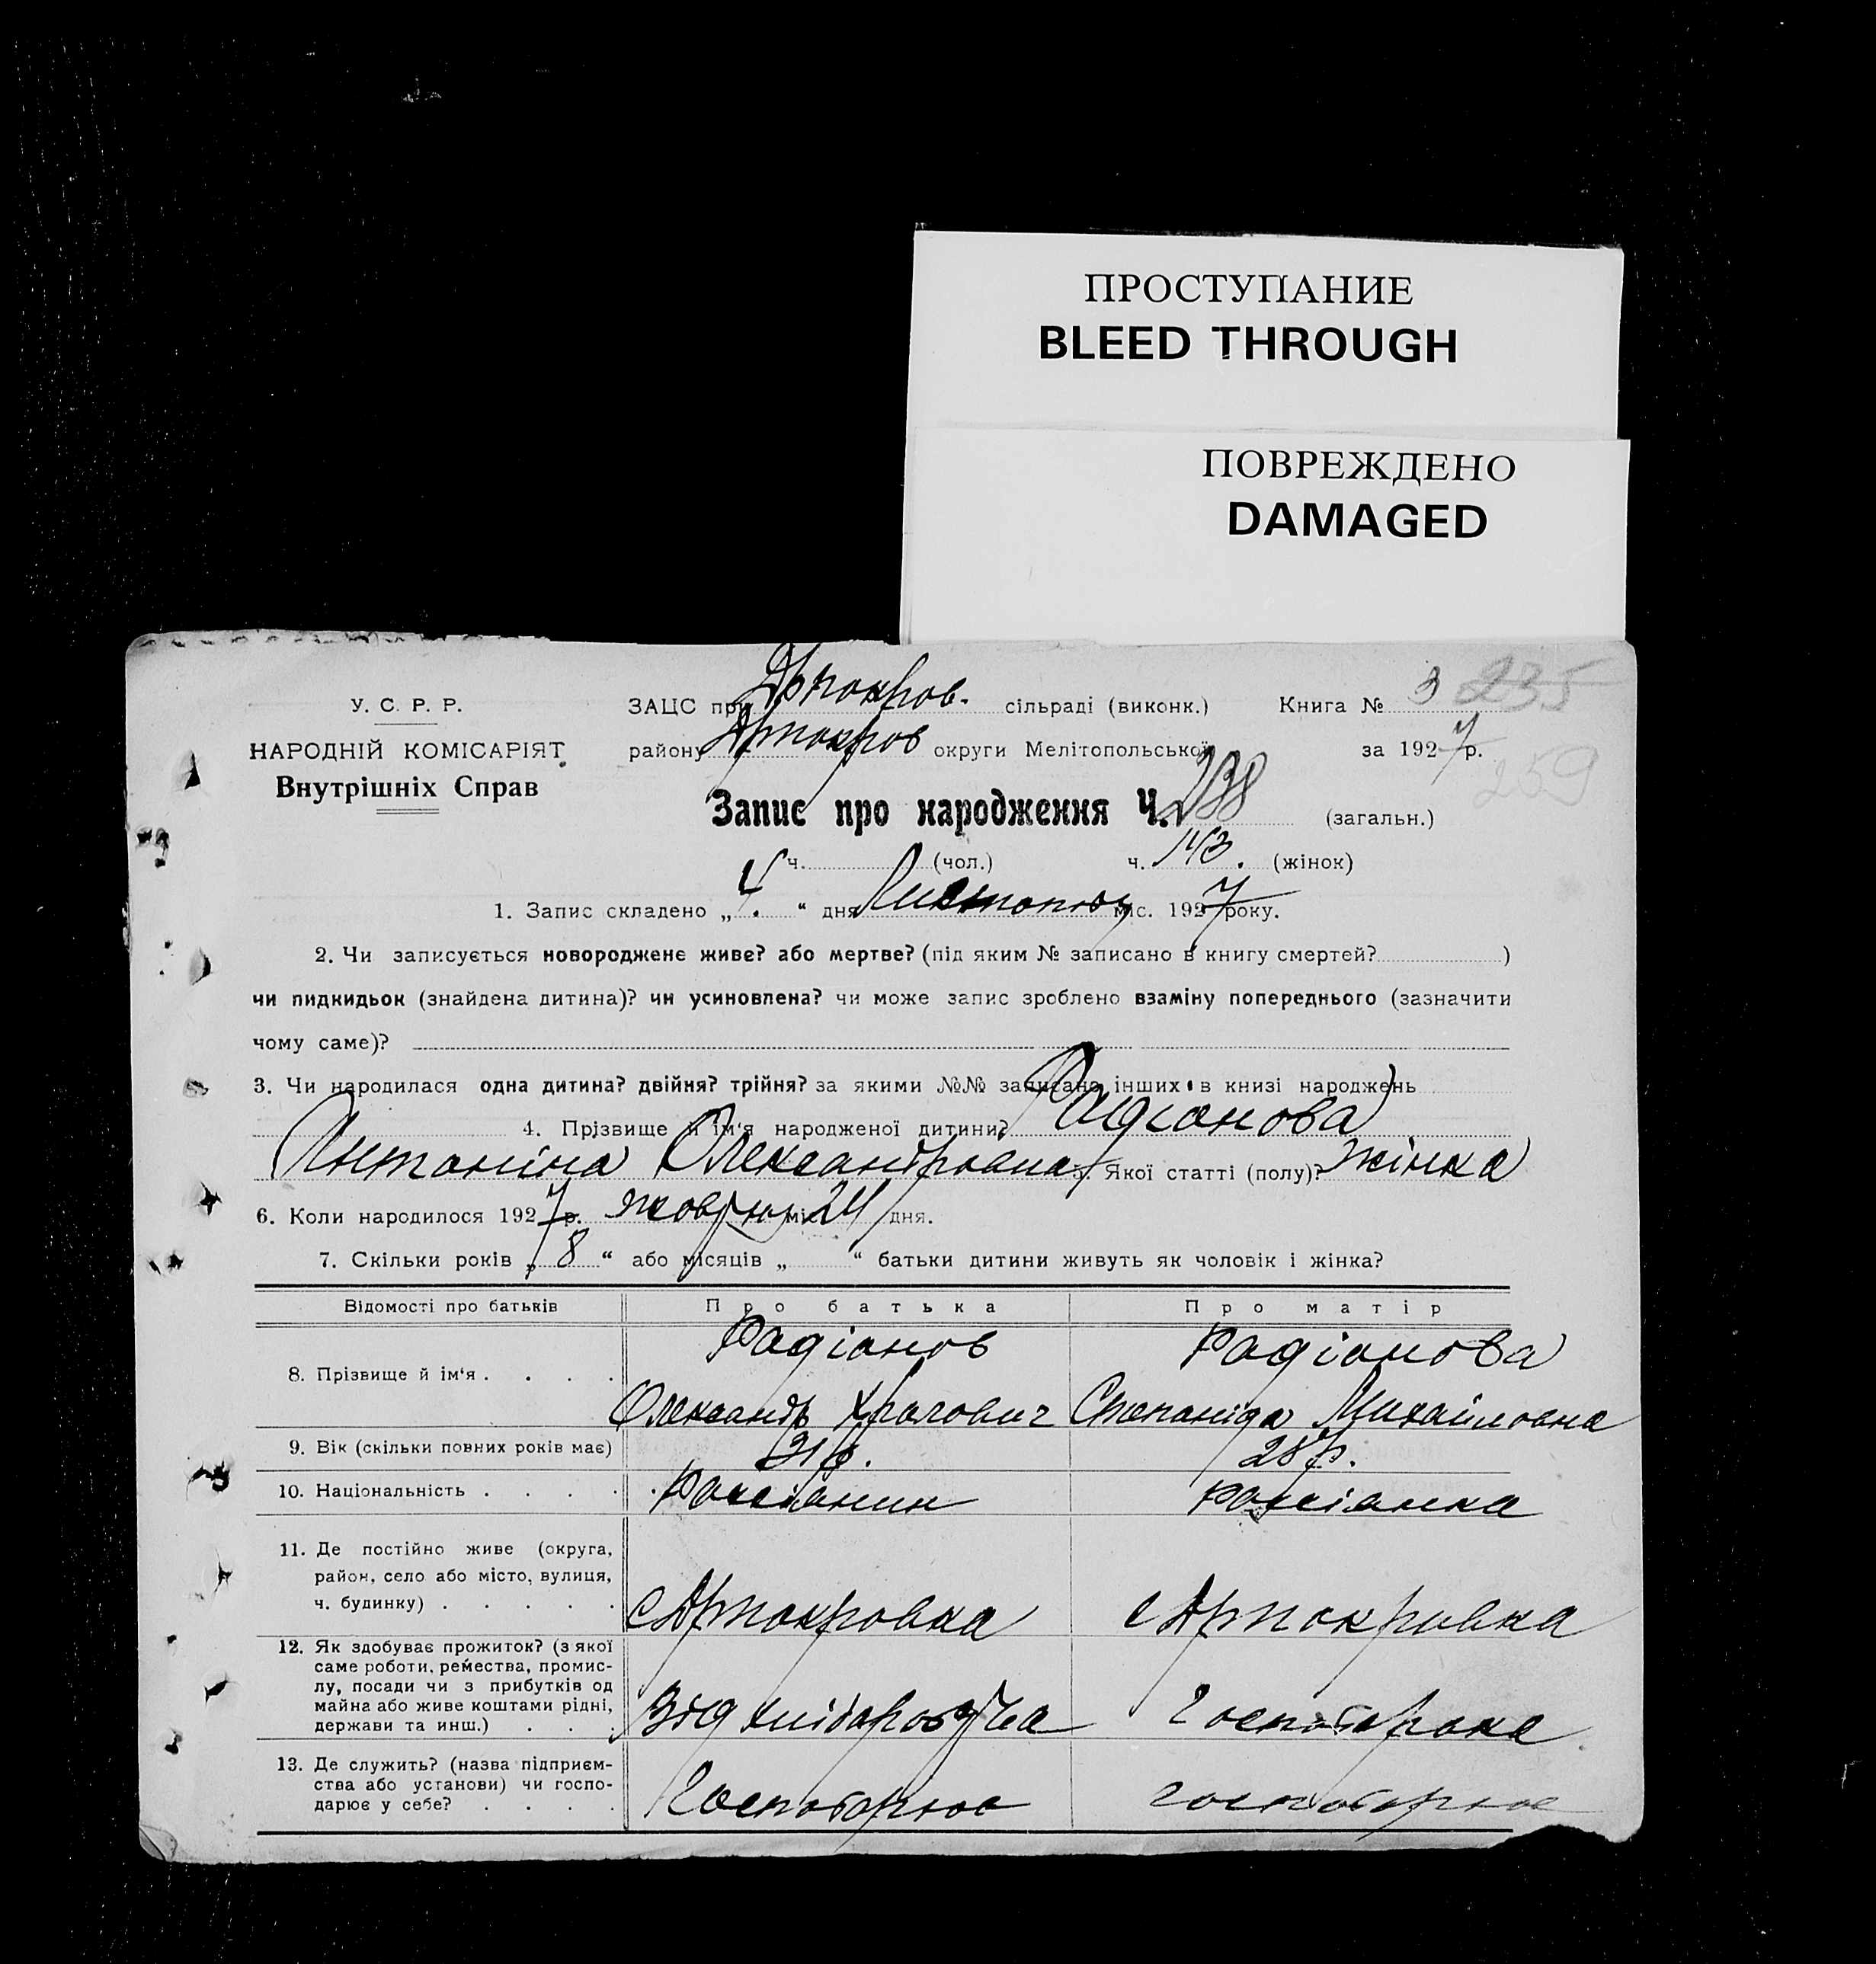 ПРОСТУПАНИЕ
BLEED THROUGH
ПОВРЕЖДЕНО
DAMAGED
У. С. Р. Р.
НАРОДНІЙ КОМІСАРІЯТ
Внутрішніх Справ
ЗАЦС при сільраді (виконк.) Книга № 3 235
району округи Мелітопольської за 1927 р.
259
Запис про народження Ч. 238 (загальн.)
ч. (чол.) ч. 143. (жінок)
1. Запис складено „ 4. “ дня Листопюду міс. 1927 року.
2. Чи записується новороджене живе? або мертве? (під яким № записано в книгу смертей? )
чи пидкидьок (знайдена дитина)? чи усиновлена? чи може запис зроблено взаміну попереднього (зазначити
чому саме)?
3. Чи народилася одна дитина? двійня? трійня? за якими №№ записано інших в книзі народжень
4. Прізвище й ім'я народженої дитини? Радіонова
Антоніна Олександровна 5. Якої статті (полу)? жінка
6. Коли народилося 1927 р. міс. 24 дня.
7. Скільки років „ 8 “ або місяців „ “ батьки дитини живуть як чоловік і жінка?
Відомості про батьків Про батька Про матір
Радіонов Радіонова
8. Прізвище й ім'я . . . .
Олександр Степаніда Михайловна
9. Вік (скільки повних років має) 31 р. 28 р.
10. Національність . . . . Россіянин россіянка
11. Де постійно живе (округа,
район, село або місто, вулиця,
ч. будинку) . . . . . с Арпокровка с Арпокровка
12. Як здобуває прожиток? (з якої
саме роботи, ремества, промис-
лу, посади чи з прибутків од
майна або живе коштами рідні,
держави та инш.) . . . Від хліборобства
13. Де служить? (назва підприєм-
ства або установи) чи госпо-
дарює у себе? . . . . Господорює господорює